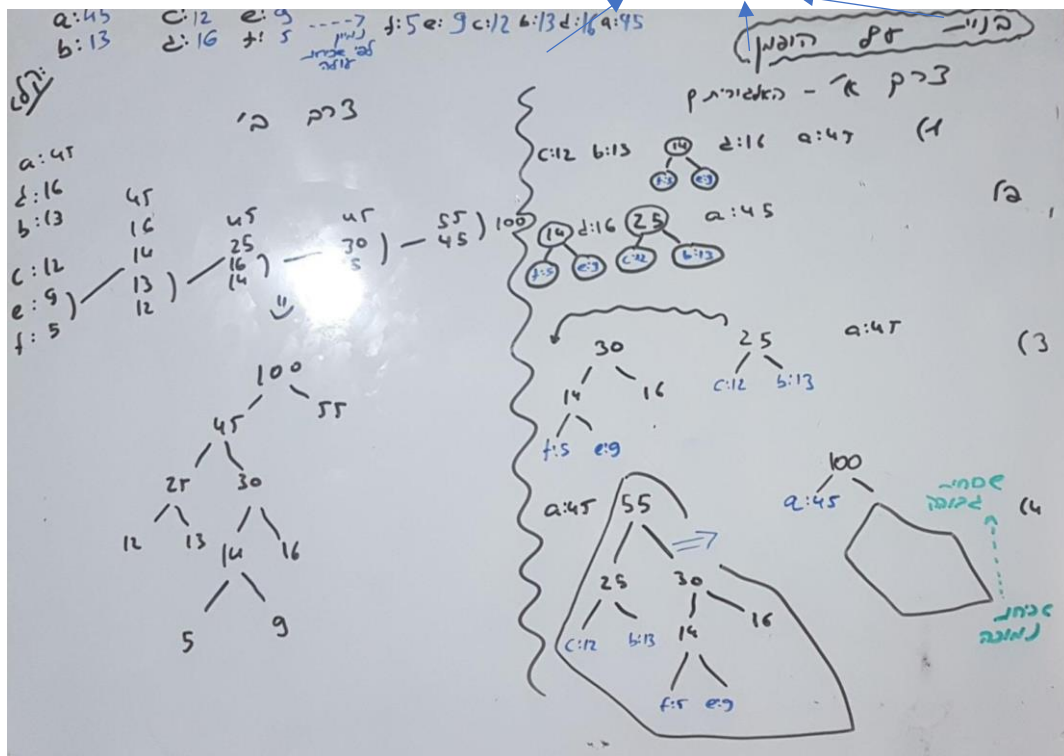 a:45 c:12 e:9 ----> f:5 e:9 c:12 b:13 d:16 a:45
b:13 d:16 f:5 נמיין
לפי שכיחות
עולה
בניית עץ הופמן
דרך א' - האלגוריתם
1) c:12 b:13 14 d:16 a:45
f:5 e:9
14 d:16 25 a:45
f:5 e:9 c:12 b:13
3) 30 25 a:45
14 16 c:12 b:13
f:5 e:9
4) a:45 55 100
a:45
25 30
c:12 b:13 14 16
f:5 e:9
שכיחות
גבוהה
שכיחות
נמוכה
קלט:
דרך ב'
a:45
d:16 45
b:13 16 45 45 55
c:12 14 25 30 45 100
e:9 13 16 5
f:5 12 14
100
45 55
25 30
12 13 14 16
5 9